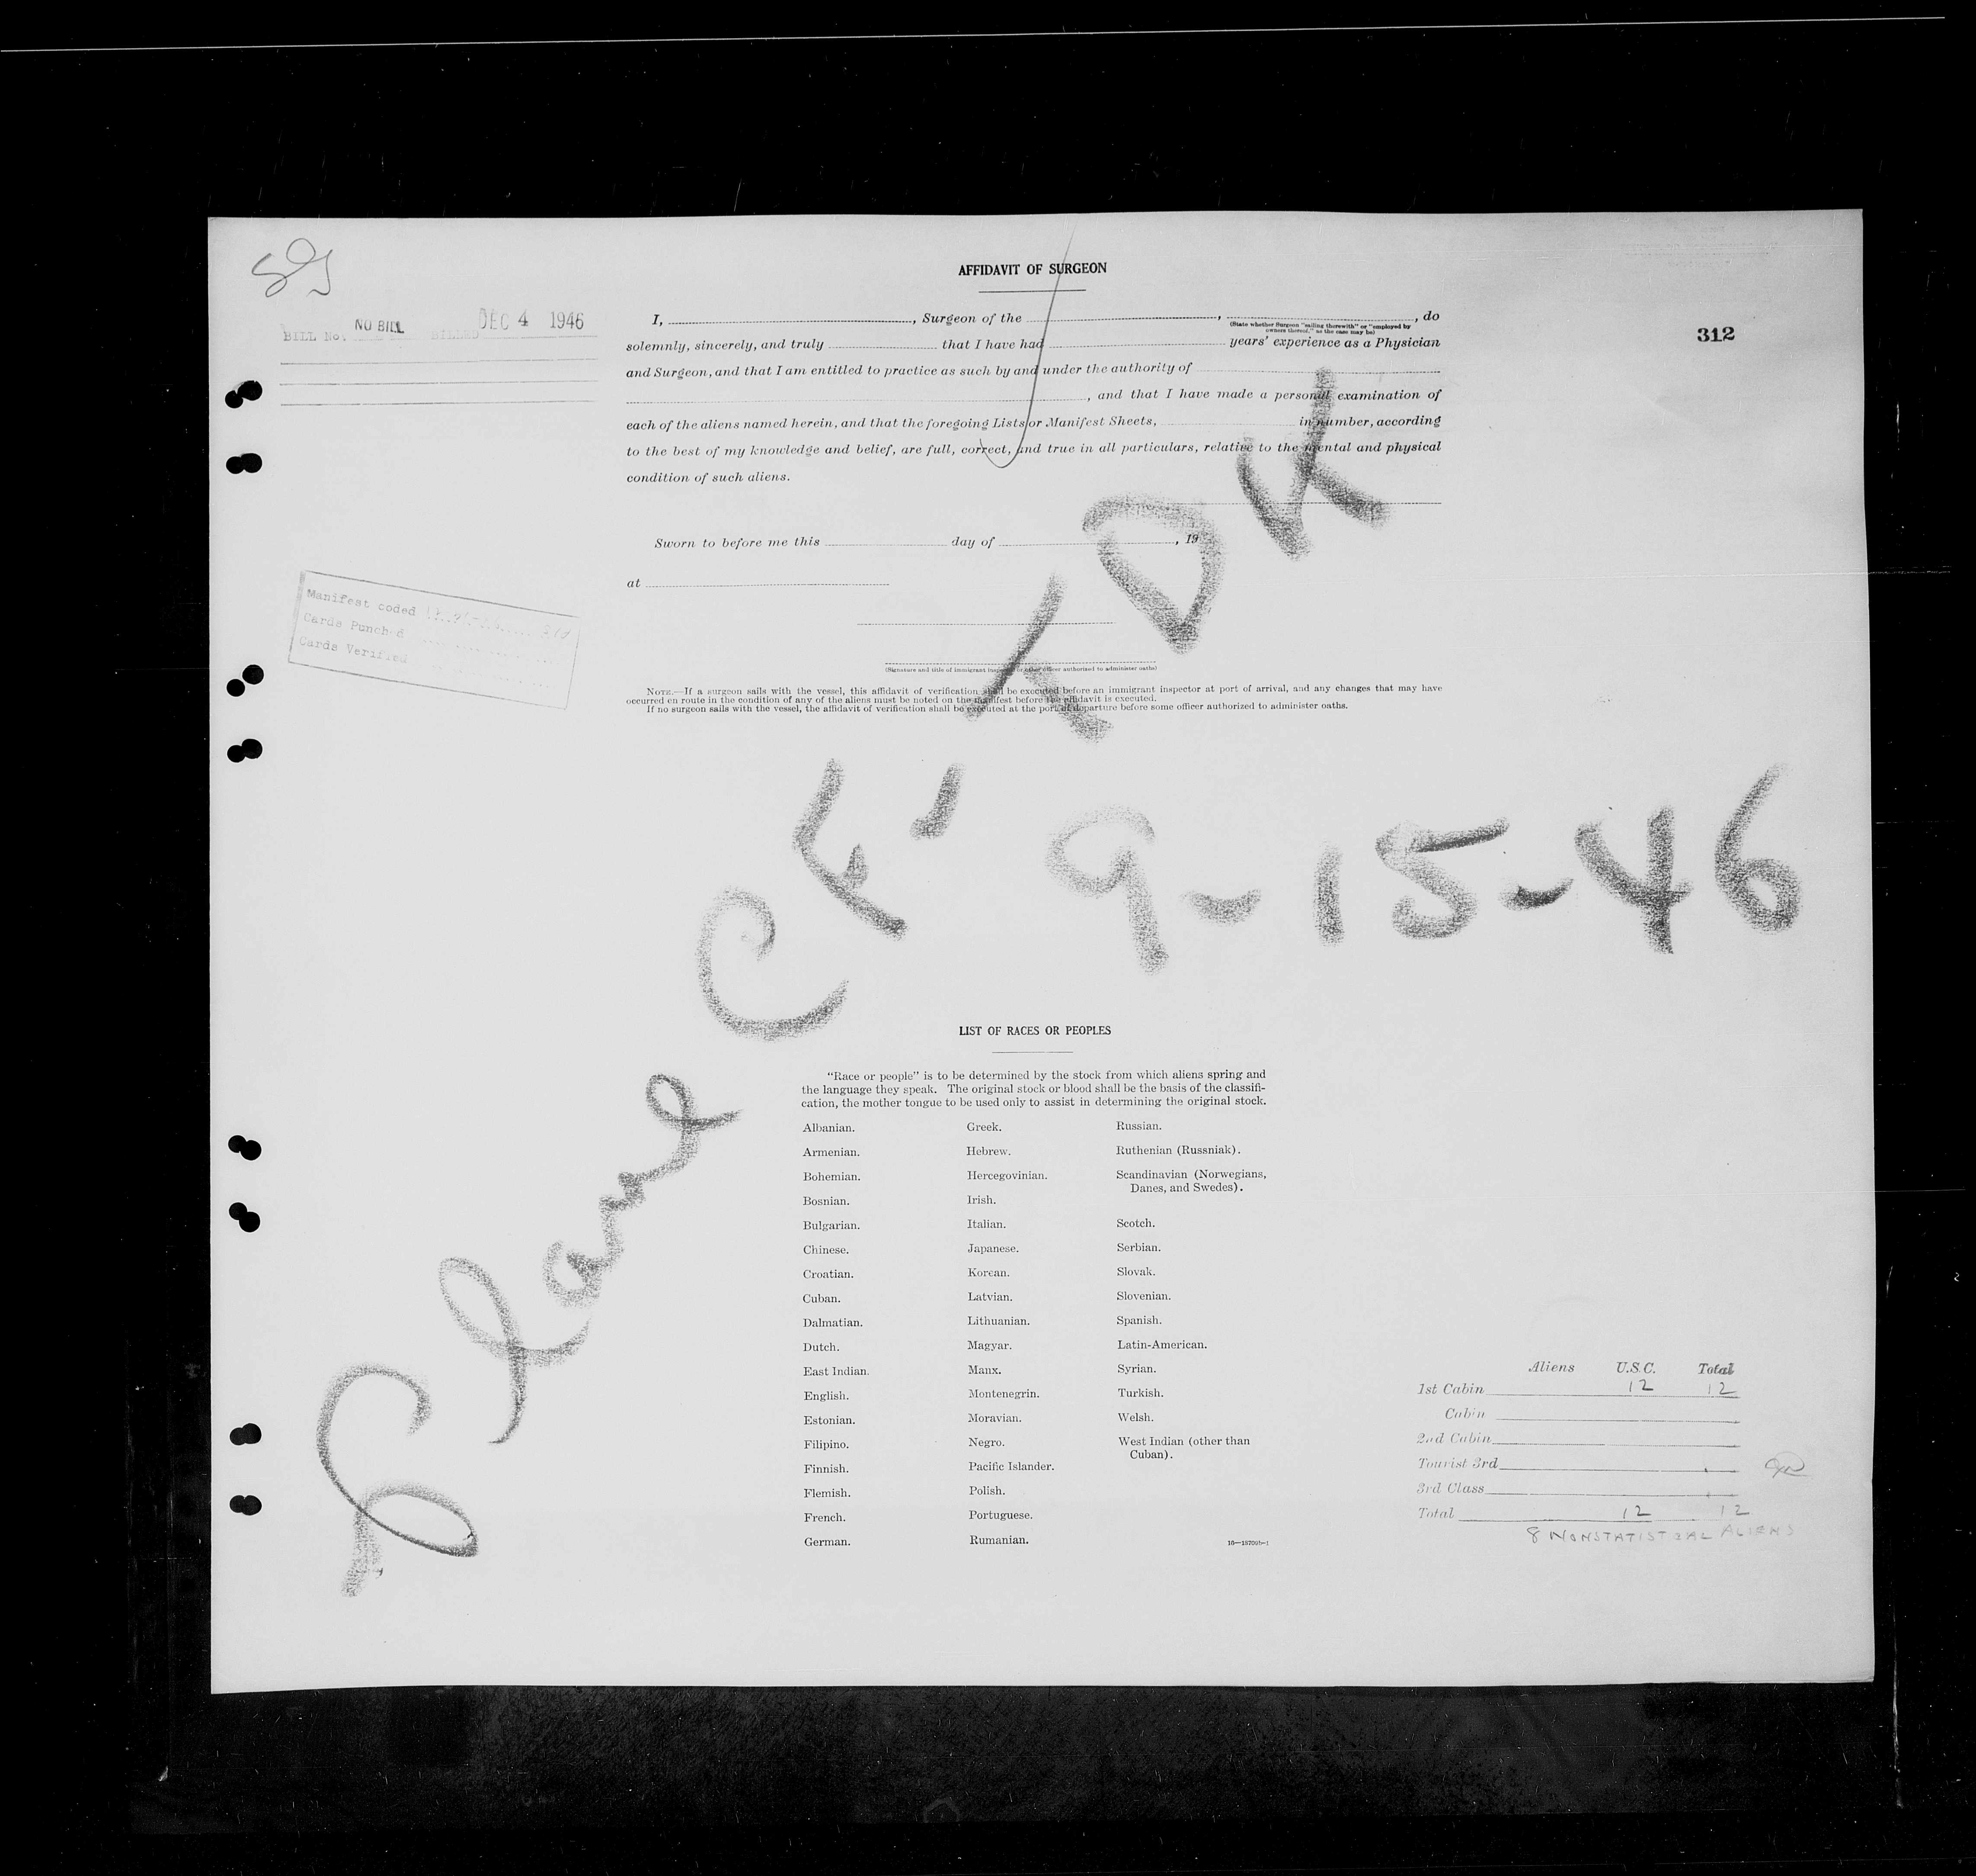 AFFIDAVIT OF SURGEON
BILL No. NO BILL BILLED DEC 4 1946
312
I, , Surgeon of the , , do
(State whether Surgeon "sailing therewith" or "employed by owners thereof," as the case may be)
solemnly, sincerely, and truly that I have had years' experience as a Physician
and Surgeon, and that I am entitled to practice as such by and under the authority of
, and that I have made a personal examination of
each of the aliens named herein, and that the foregoing Lists or Manifest Sheets, in number, according
to the best of my knowledge and belief, are full, correct, and true in all particulars, relative to the mental and physical
condition of such aliens.
Sworn to before me this day of , 19
at
Manifest coded
Cards Punched
Cards Verified
(Signature and title of immigrant inspector or other officer authorized to administer oaths)
NOTE.—If a surgeon sails with the vessel, this affidavit of verification shall be executed before an immigrant inspector at port of arrival, and any changes that may have
occurred en route in the condition of any of the aliens must be noted on the manifest before the affidavit is executed.
If no surgeon sails with the vessel, the affidavit of verification shall be executed at the port of departure before some officer authorized to administer oaths.
Plane CF-TDK
9-15-46
LIST OF RACES OR PEOPLES
"Race or people" is to be determined by the stock from which aliens spring and
the language they speak. The original stock or blood shall be the basis of the classifi-
cation, the mother tongue to be used only to assist in determining the original stock.
Albanian.
Armenian.
Bohemian.
Bosnian.
Bulgarian.
Chinese.
Croatian.
Cuban.
Dalmatian.
Dutch.
East Indian.
English.
Estonian.
Filipino.
Finnish.
Flemish.
French.
German.
Greek.
Hebrew.
Hercegovinian.
Irish.
Italian.
Japanese.
Korean.
Latvian.
Lithuanian.
Magyar.
Manx.
Montenegrin.
Moravian.
Negro.
Pacific Islander.
Polish.
Portuguese.
Rumanian.
Russian.
Ruthenian (Russniak).
Scandinavian (Norwegians,
Danes, and Swedes).
Scotch.
Serbian.
Slovak.
Slovenian.
Spanish.
Latin-American.
Syrian.
Turkish.
Welsh.
West Indian (other than
Cuban).
Aliens U.S.C. Total
1st Cabin 12 12
Cabin
2nd Cabin
Tourist 3rd
3rd Class
Total 12 12
8 NONSTATISTICAL ALIENS